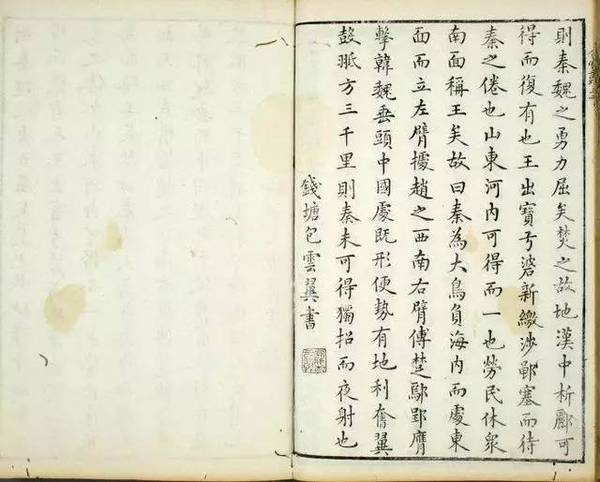 則秦魏之勇力屈矣楚之故地漢中析酈可
得而復有也王出寶弓碆新繳涉鄳塞而待
秦之倦也山東河內可得而一也勞民休眾
南面稱王矣故曰秦為大鳥負海內而處東
面而立左臂據趙之西南右臂傅楚鄢郢膺
擊韓魏垂頭中國處既形便勢有地利奮翼
鼓翄方三千里則秦未可得獨招而夜射也
錢塘包雲翼書